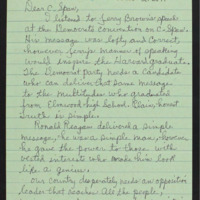 Dear C. Span,
I listend to Jerry Brown's speech
at the Democratic Convention on C-Span.
His message was lofty and correct,
however, Jerry's manner of speaking
would inspire the Harvard graduates.
The Democrat party needs a Candidate
who can deliver that same message
to the multitudes who graduated
from Elmwood high school. Plain, honest
truth is simple.
Ronald Reagan deliverd a simple
message, he was a simple man, however
he gave the power to those with
vested interests who made him look
like a genius.
Our country desperately needs an opposition
leader that reaches All the people,